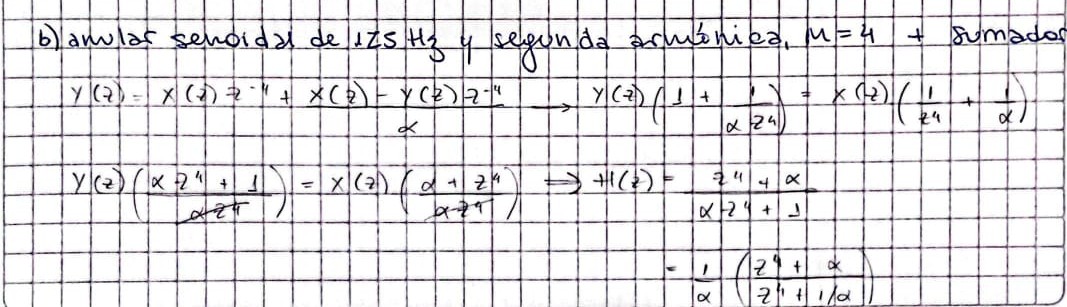 b) anular senoidal de 125 Hz y segunda armónica, M=4 + sumador
Y(z) = X(z) z⁻⁴ + (X(z) - Y(z) z⁻⁴)/α → Y(z) (1 + 1/(α z⁴)) = X(z) (1/z⁴ + 1/α)
Y(z) ((α z⁴ + 1)/(α z⁴)) = X(z) ((α + z⁴)/(α z⁴)) ⇒ H(z) = (z⁴ + α)/(α z⁴ + 1)
= 1/α ((z⁴ + α)/(z⁴ + 1/α))